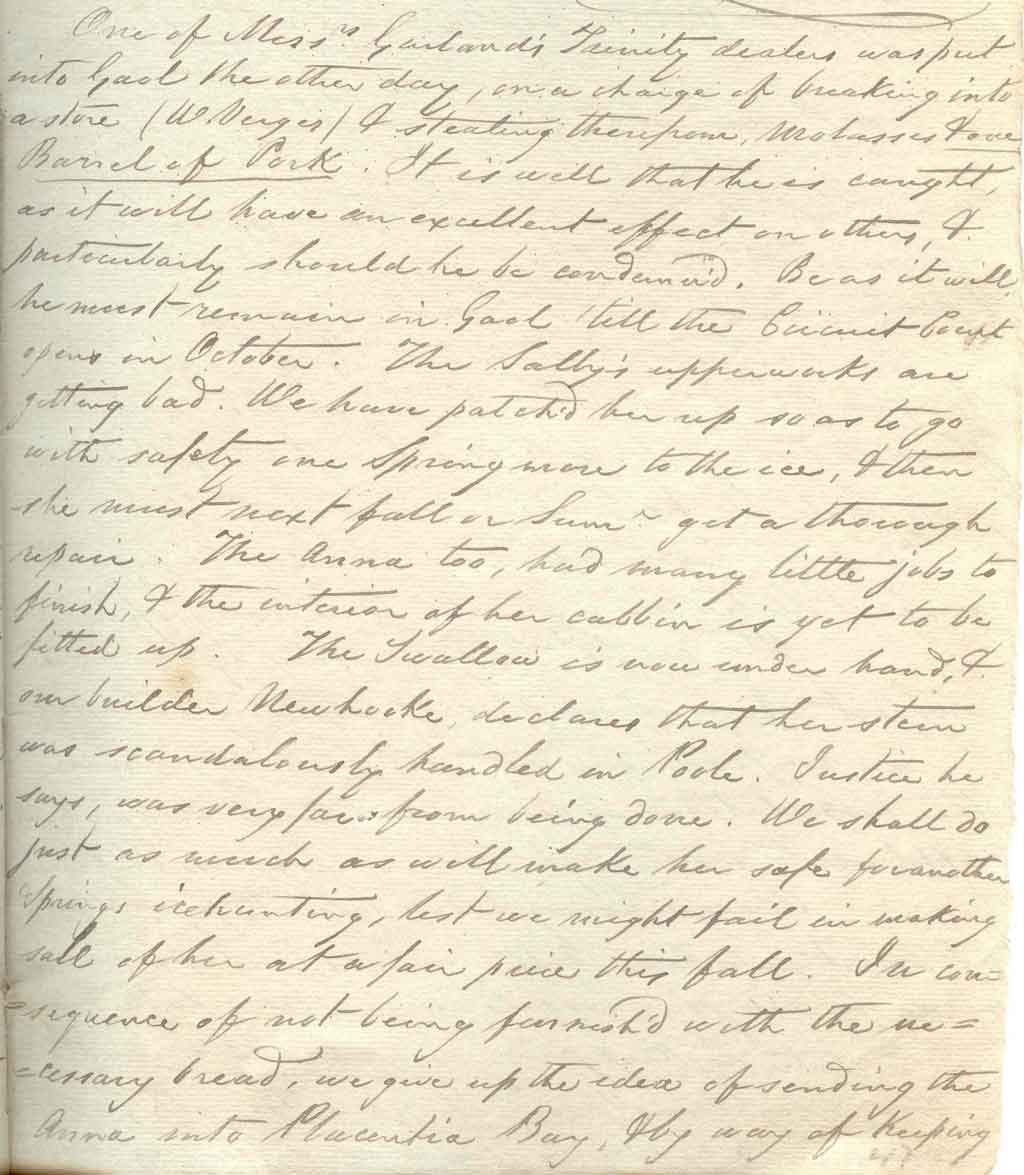 One of Messrs Garland's Trinity dealers was put
into Gaol the other day, on a charge of breaking into
a store (W Verges) & stealing therefrom, Molasses & one
Barrel of Pork. It is well that he is caught,
as it will have an excellent effect on others, &
particularly should he be condemn'd. Be as it will
he must remain in Gaol 'till the Circuit Court
opens in October. The Sally's upperworks are
getting bad. We have patch'd her up so as to go
with safety one Spring more to the ice, & then
she must next fall or Sumr get a thorough
repair. The Anna too, had many little jobs to
finish, & the interior of her cabbin is yet to be
fitted up. The Swallow is now under hand, &
our builder Newhooke, declares that her stem
was scandalously handled in Poole. Justice he
says, was very far from being done. We shall do
just as much as will make her safe for another
Springs icehunting, lest we might fail in making
sale of her at a fair price this fall. In con=
=sequence of not being furnish'd with the ne=
=cessary bread, we give up the idea of sending the
Anna into Placentia Bay, & by way of Keeping